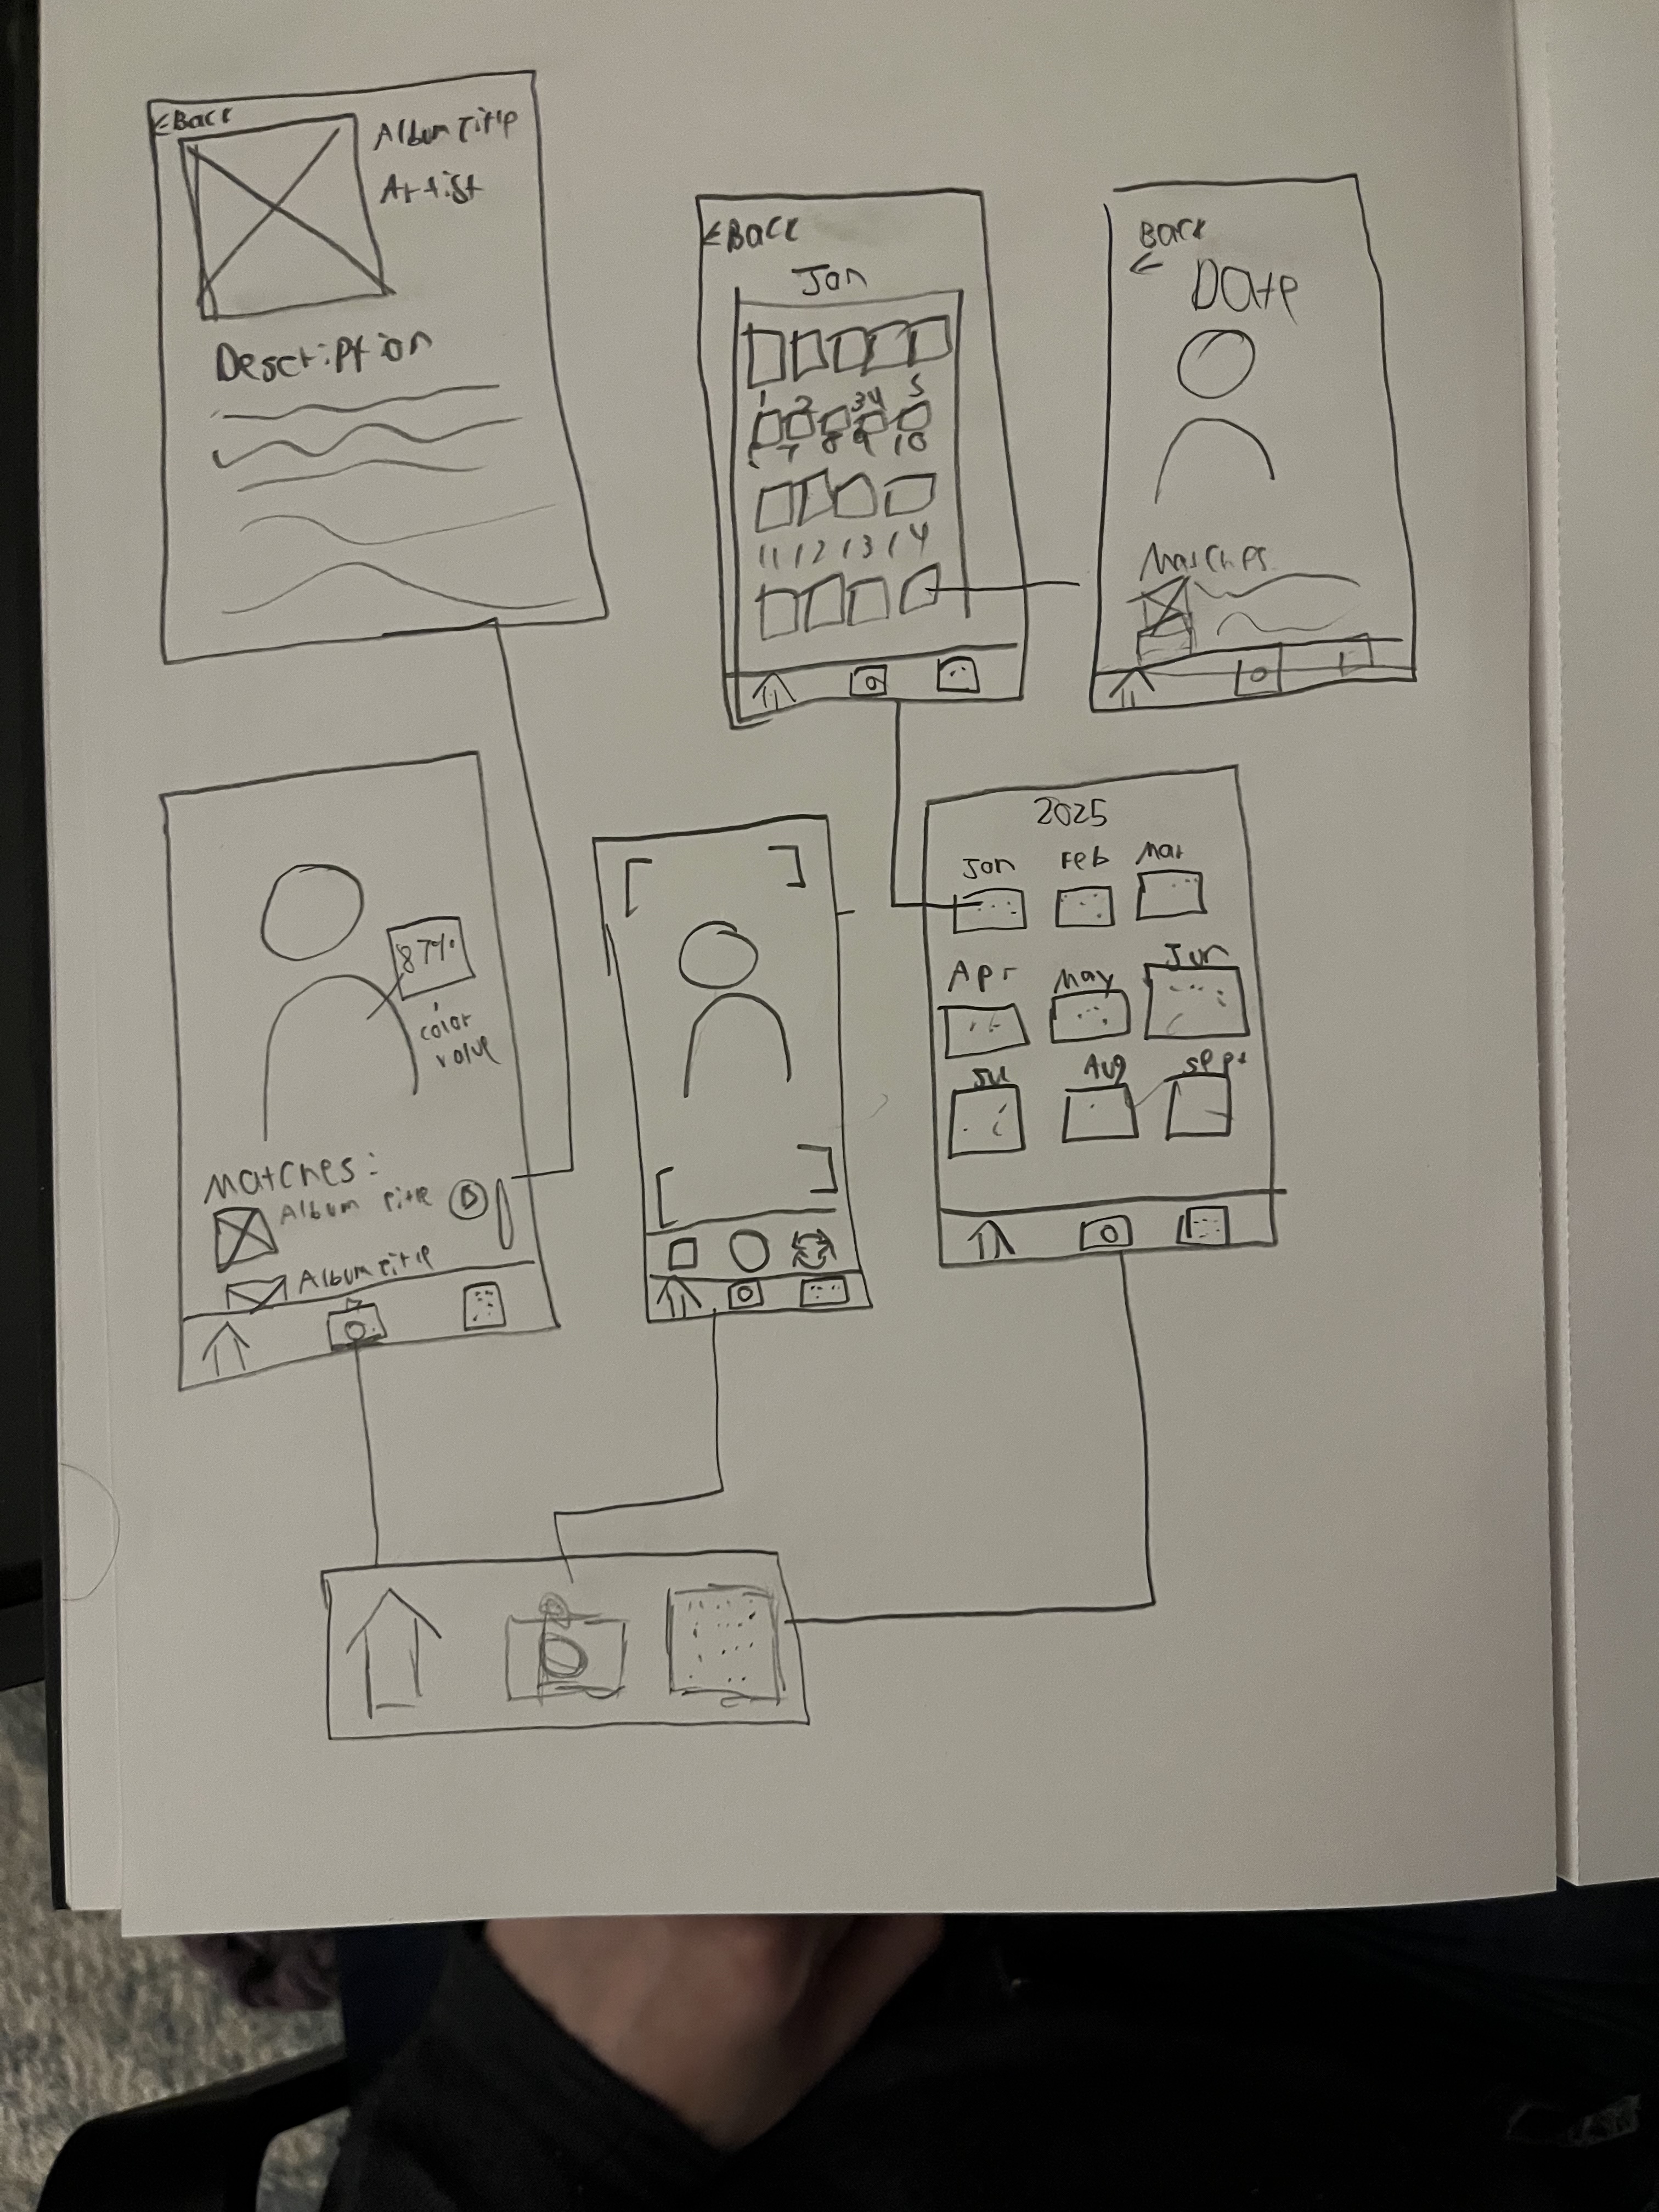 <Back
Album Title
Artist
Description
<Back
Jan
1 2 3 4 5
6 7 8 9 10
11 12 13 14
Back
←
Date
Matches
87%
color
value
Matches:
Album title
Album title
2025
Jan Feb Mar
Apr May Jun
Jul Aug Sept